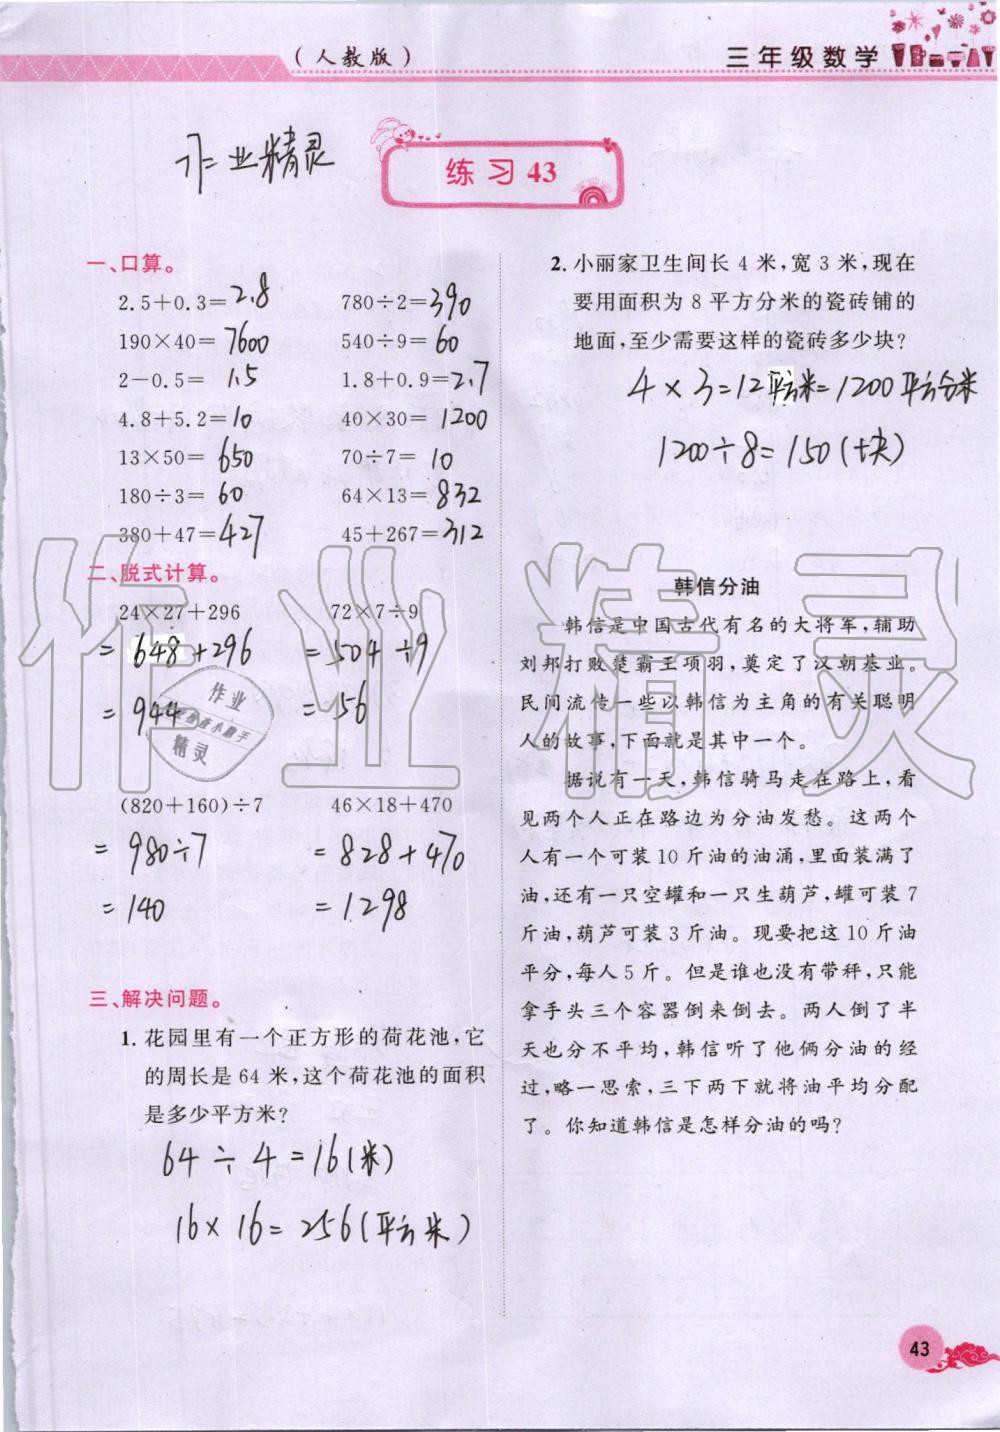 (人教版)
三年级数学
作业精灵
练习 43
一、口算。
2.5+0.3=2.8 780÷2=390
190×40=7600 540÷9=60
2-0.5=1.5 1.8+0.9=2.7
4.8+5.2=10 40×30=1200
13×50=650 70÷7=10
180÷3=60 64×13=832
380+47=427 45+267=312
二、脱式计算。
24×27+296 72×7÷9
=648+296 =504÷9
=944 =56
(820+160)÷7 46×18+470
=980÷7 =828+470
=140 =1298
三、解决问题。
1. 花园里有一个正方形的荷花池,它
的周长是 64 米,这个荷花池的面积
是多少平方米?
64÷4=16(米)
16×16=256(平方米)
2. 小丽家卫生间长 4 米,宽 3 米,现在
要用面积为 8 平方分米的瓷砖铺的
地面,至少需要这样的瓷砖多少块?
4×3=12平方米=1200平方分米
1200÷8=150(块)
韩信分油
韩信是中国古代有名的大将军,辅助
刘邦打败楚霸王项羽,奠定了汉朝基业。
民间流传一些以韩信为主角的有关聪明
人的故事,下面就是其中一个。
据说有一天,韩信骑马走在路上,看
见两个人正在路边为分油发愁。这两个
人有一个可装 10 斤油的油涌,里面装满了
油,还有一只空罐和一只生葫芦,罐可装 7
斤油,葫芦可装 3 斤油。现要把这 10 斤油
平分,每人 5 斤。但是谁也没有带秤,只能
拿手头三个容器倒来倒去。两人倒了半
天也分不平均,韩信听了他俩分油的经
过,略一思索,三下两下就将油平均分配
了。你知道韩信是怎样分油的吗?
作业精灵
作业
精灵
43